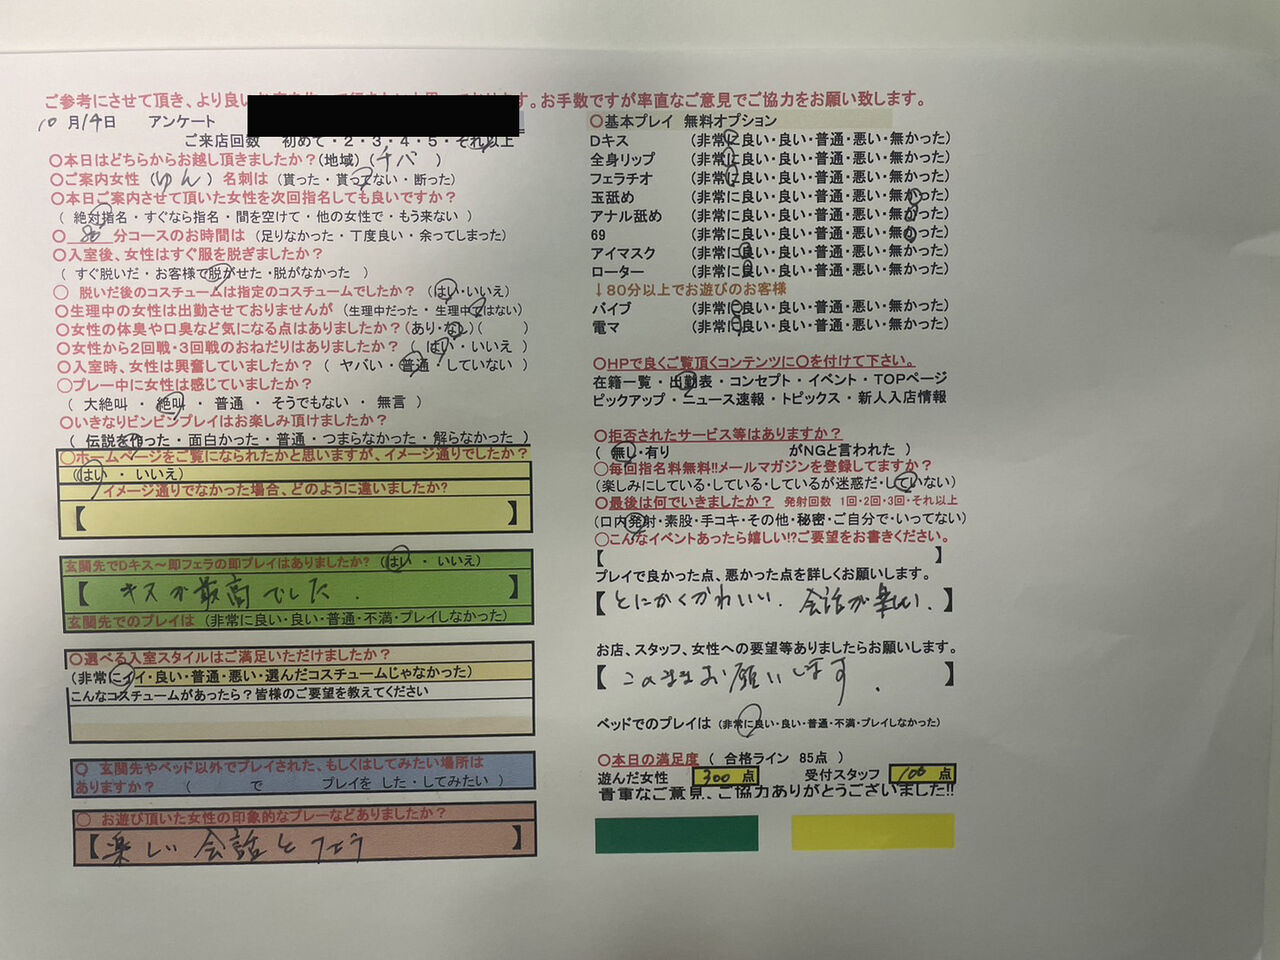 ご参考にさせて頂き、より良い
す。お手数ですが率直なご意見でご協力をお願い致します。
10月14日 アンケート
ご来店回数 初めて・2・3・4・5・それ以上
〇本日はどちらからお越し頂きましたか？(地域)（チバ）
〇ご案内女性（ゆん）名刺は（貰った・貰ってない・断った)
〇本日ご案内させて頂いた女性を次回指名しても良いですか？
（ 絶対指名・すぐなら指名・間を空けて・他の女性で・もう来ない ）
〇 80 分コースのお時間は（足りなかった・丁度良い・余ってしまった)
〇入室後、女性はすぐ服を脱ぎましたか？
（ すぐ脱いだ・お客様で脱がせた・脱がなかった ）
〇 脱いだ後のコスチュームは指定のコスチュームでしたか？（はい・いいえ)
〇生理中の女性は出勤させておりませんが（生理中だった・生理中ではない)
〇女性の体臭や口臭など気になる点はありましたか？(あり・なし)( )
〇女性から2回戦・3回戦のおねだりはありましたか？（ はい・いいえ ）
〇入室時、女性は興奮していましたか？（ ヤバい・普通・していない ）
〇プレー中に女性は感じていましたか？
（ 大絶叫・絶叫・普通・そうでもない・無言 ）
〇いきなりビンビンプレイはお楽しみ頂けましたか？
（ 伝説を作った・面白かった・普通・つまらなかった・解らなかった ）
〇ホームページをご覧になられたかと思いますが、イメージ通りでしたか？
(はい ・ いいえ)
イメージ通りでなかった場合、どのように違いましたか？
【 】
玄関先でDキス～即フェラの即プレイはありましたか？（はい ・ いいえ)
【 キスが最高でした. 】
玄関先でのプレイは（非常に良い・良い・普通・不満・プレイしなかった)
〇選べる入室スタイルはご満足いただけましたか？
(非常にイイ・良い・普通・悪い・選んだコスチュームじゃなかった)
こんなコスチュームがあったら？皆様のご要望を教えてください
〇 玄関先やベッド以外でプレイされた、もしくはしてみたい場所は
ありますか？（ で プレイを した・してみたい ）
〇 お遊び頂いた女性の印象的なプレーなどありましたか？
【楽しい 会話と フェラ 】
〇基本プレイ 無料オプション
Dキス （非常に良い・良い・普通・悪い・無かった)
全身リップ （非常に良い・良い・普通・悪い・無かった)
フェラチオ （非常に良い・良い・普通・悪い・無かった)
玉舐め （非常に良い・良い・普通・悪い・無かった)
アナル舐め （非常に良い・良い・普通・悪い・無かった)
69 （非常に良い・良い・普通・悪い・無かった)
アイマスク （非常に良い・良い・普通・悪い・無かった)
ローター （非常に良い・良い・普通・悪い・無かった)
↓80分以上でお遊びのお客様
バイブ （非常に良い・良い・普通・悪い・無かった)
電マ （非常に良い・良い・普通・悪い・無かった)
〇HPで良くご覧頂くコンテンツに〇を付けて下さい。
在籍一覧・出勤表・コンセプト・イベント・TOPページ
ピックアップ・ニュース速報・トピックス・新人入店情報
〇拒否されたサービス等はありますか？
（ 無し・有り がNGと言われた ）
〇毎回指名料無料!!メールマガジンを登録してますか？
(楽しみにしている・している・しているが迷惑だ・していない)
〇最後は何でいきましたか？ 発射回数 1回・2回・3回・それ以上
(口内発射・素股・手コキ・その他・秘密・ご自分で・いってない)
〇こんなイベントあったら嬉しい!?ご要望をお書きください。
【 】
プレイで良かった点、悪かった点を詳しくお願いします。
【とにかくかわいい. 会話が楽しい. 】
お店、スタッフ、女性への要望等ありましたらお願いします。
【 このままお願いします. 】
ベッドでのプレイは（非常に良い・良い・普通・不満・プレイしなかった)
〇本日の満足度（ 合格ライン 85点 ）
遊んだ女性 300 点 受付スタッフ 100 点
貴重なご意見、ご協力ありがとうございました!!